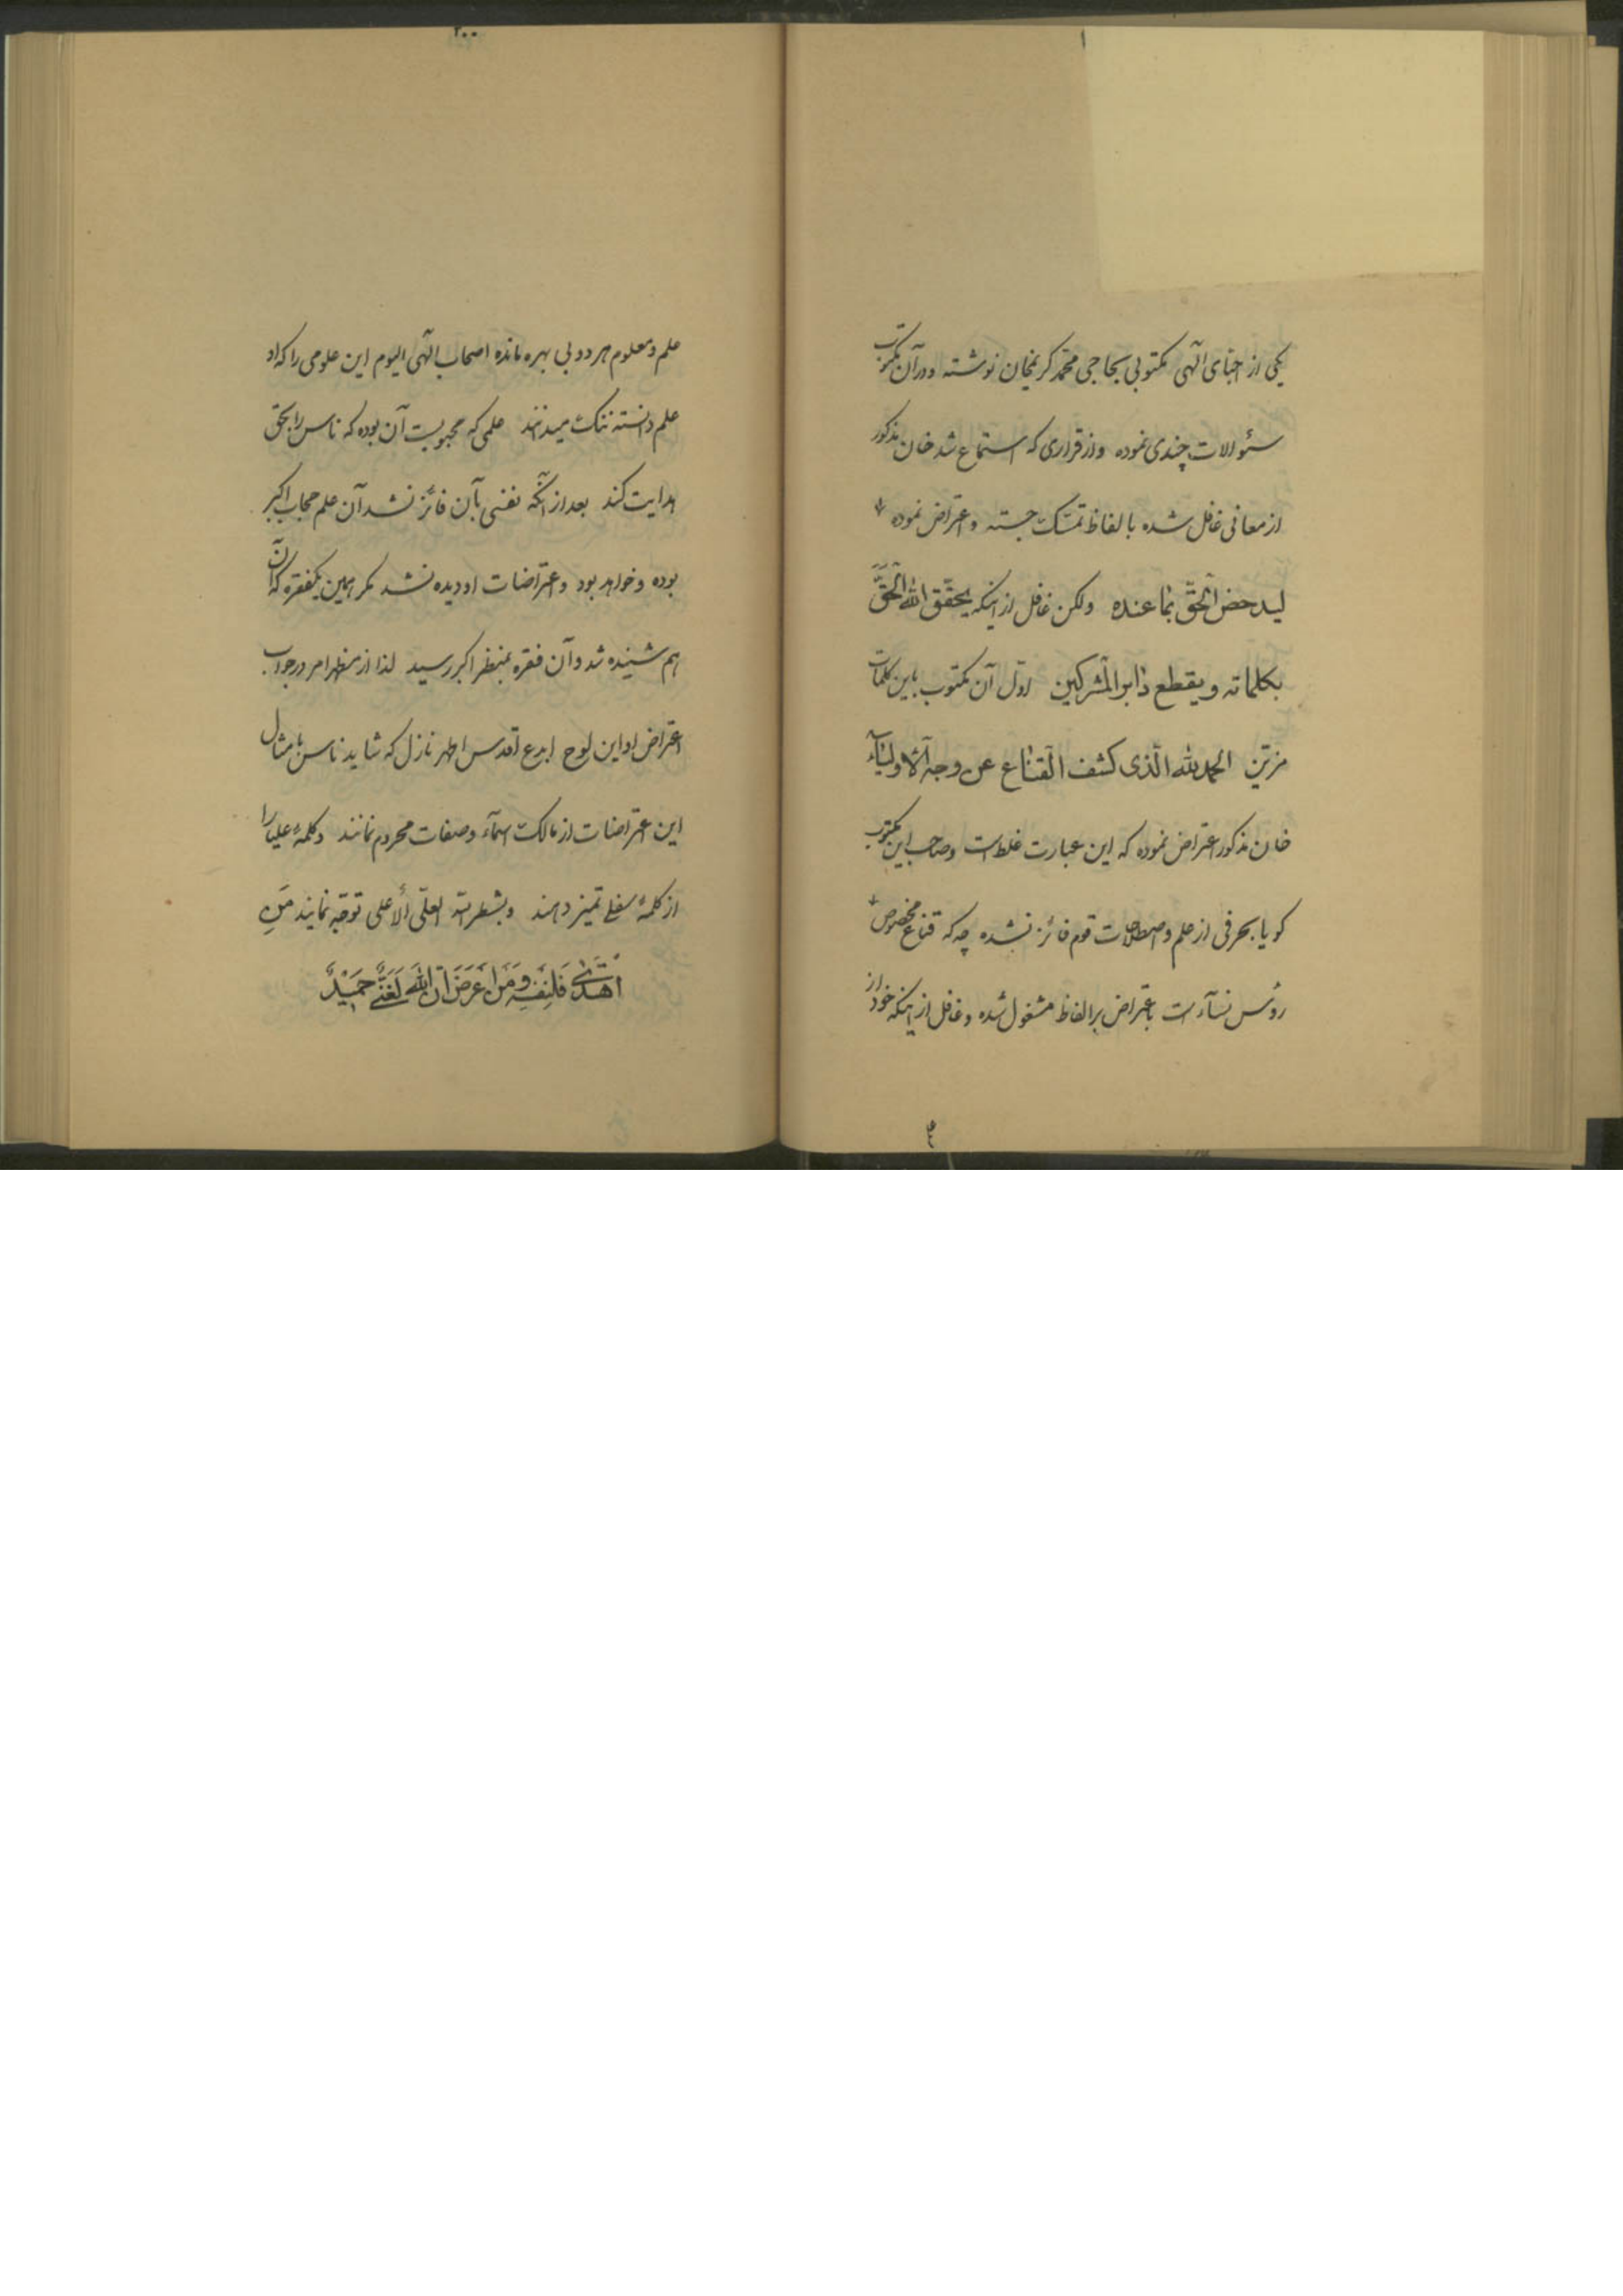 یکی از احبّای الهی مکتوبی بحاجی محمد کریمخان نوشته و در آن مکتوب
سئوالات چندی نموده و از قراری که استماع شد خان مذکور
از معانی غافل شده بالفاظ تمسّک جسته و اعتراض نموده
لیدحض الحقّ بما عنده ولکن غافل از اینکه یحقّق الله الحقّ
بکلماته و یقطع دابر المشرکین اوّل آن مکتوب باین کلمات
مزیّن الحمد لله الّذی کشف القناع عن وجه الأولیآء
خان مذکور اعتراض نموده که این عبارت غلط است و صاحب این مکتوب
گویا بحرفی از علم و اصطلاحات قوم فائز نشده چه که قناع مخصوص
رؤس نسآء است باعتراض بر الفاظ مشغول شده و غافل از اینکه خود از
۲۰۰
علم و معلوم هر دو بی بهره مانده اصحاب الهی الیوم این علومی را که او
علم دانسته ننگ میدانند علمی که محبوبست آن بوده که ناس را بحق
هدایت کند بعد از آنکه نفسی بآن فائز نشد آن علم حجاب اکبر
بوده و خواهد بود و اعتراضات او دیده نشد مگر همین یکفقره که آن
هم شنیده شد و آن فقره بمنظر اکبر رسید لذا از مظهر امر در جواب
اعتراض او این لوح ابدع اقدس اطهر نازل که شاید ناس بامثال
این اعتراضات از مالک اسمآء و صفات محروم نمانند و کلمهٔ علیا را
از کلمهٔ سفلی تمیز دهند و بشطر الله العلّی الأعلی توجّه نمایند مَنِ
اهْتَدَی فَلِنَفْسِهِ وَمَنْ اَعْرَضَ اِنَّ اللّٰهَ لَغَنِیٌّ حَمِیْدٌ